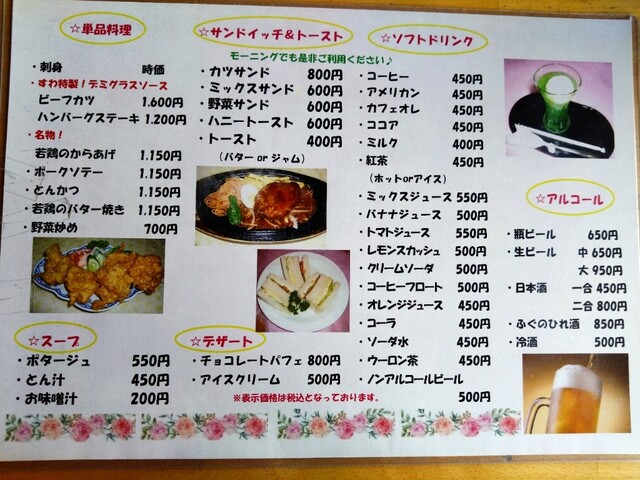 ☆単品料理
・刺身 時価
・すわ特製！デミグラスソース
ビーフカツ 1.600円
ハンバーグステーキ 1.200円
・名物！
若鶏のからあげ 1.150円
・ポークソテー 1.150円
・とんかつ 1.150円
・若鶏のバター焼き 1.150円
・野菜炒め 700円
☆サンドイッチ&トースト
モーニングでも是非ご利用ください♪
・カツサンド 800円
・ミックスサンド 600円
・野菜サンド 600円
・ハニートースト 600円
・トースト 400円
（バター or ジャム）
☆ソフトドリンク
・コーヒー 450円
・アメリカン 450円
・カフェオレ 450円
・ココア 450円
・ミルク 400円
・紅茶 450円
（ホットorアイス）
・ミックスジュース 550円
・バナナジュース 500円
・トマトジュース 550円
・レモンスカッシュ 500円
・クリームソーダ 500円
・コーヒーフロート 500円
・オレンジジュース 450円
・コーラ 450円
・ソーダ水 450円
・ウーロン茶 450円
・ノンアルコールビール
500円
☆アルコール
・瓶ビール 650円
・生ビール 中 650円
大 950円
・日本酒 一合 450円
二合 800円
・ふぐのひれ酒 850円
・冷酒 500円
☆スープ
・ポタージュ 550円
・とん汁 450円
・お味噌汁 200円
☆デザート
・チョコレートパフェ 800円
・アイスクリーム 500円
※表示価格は税込となっております。